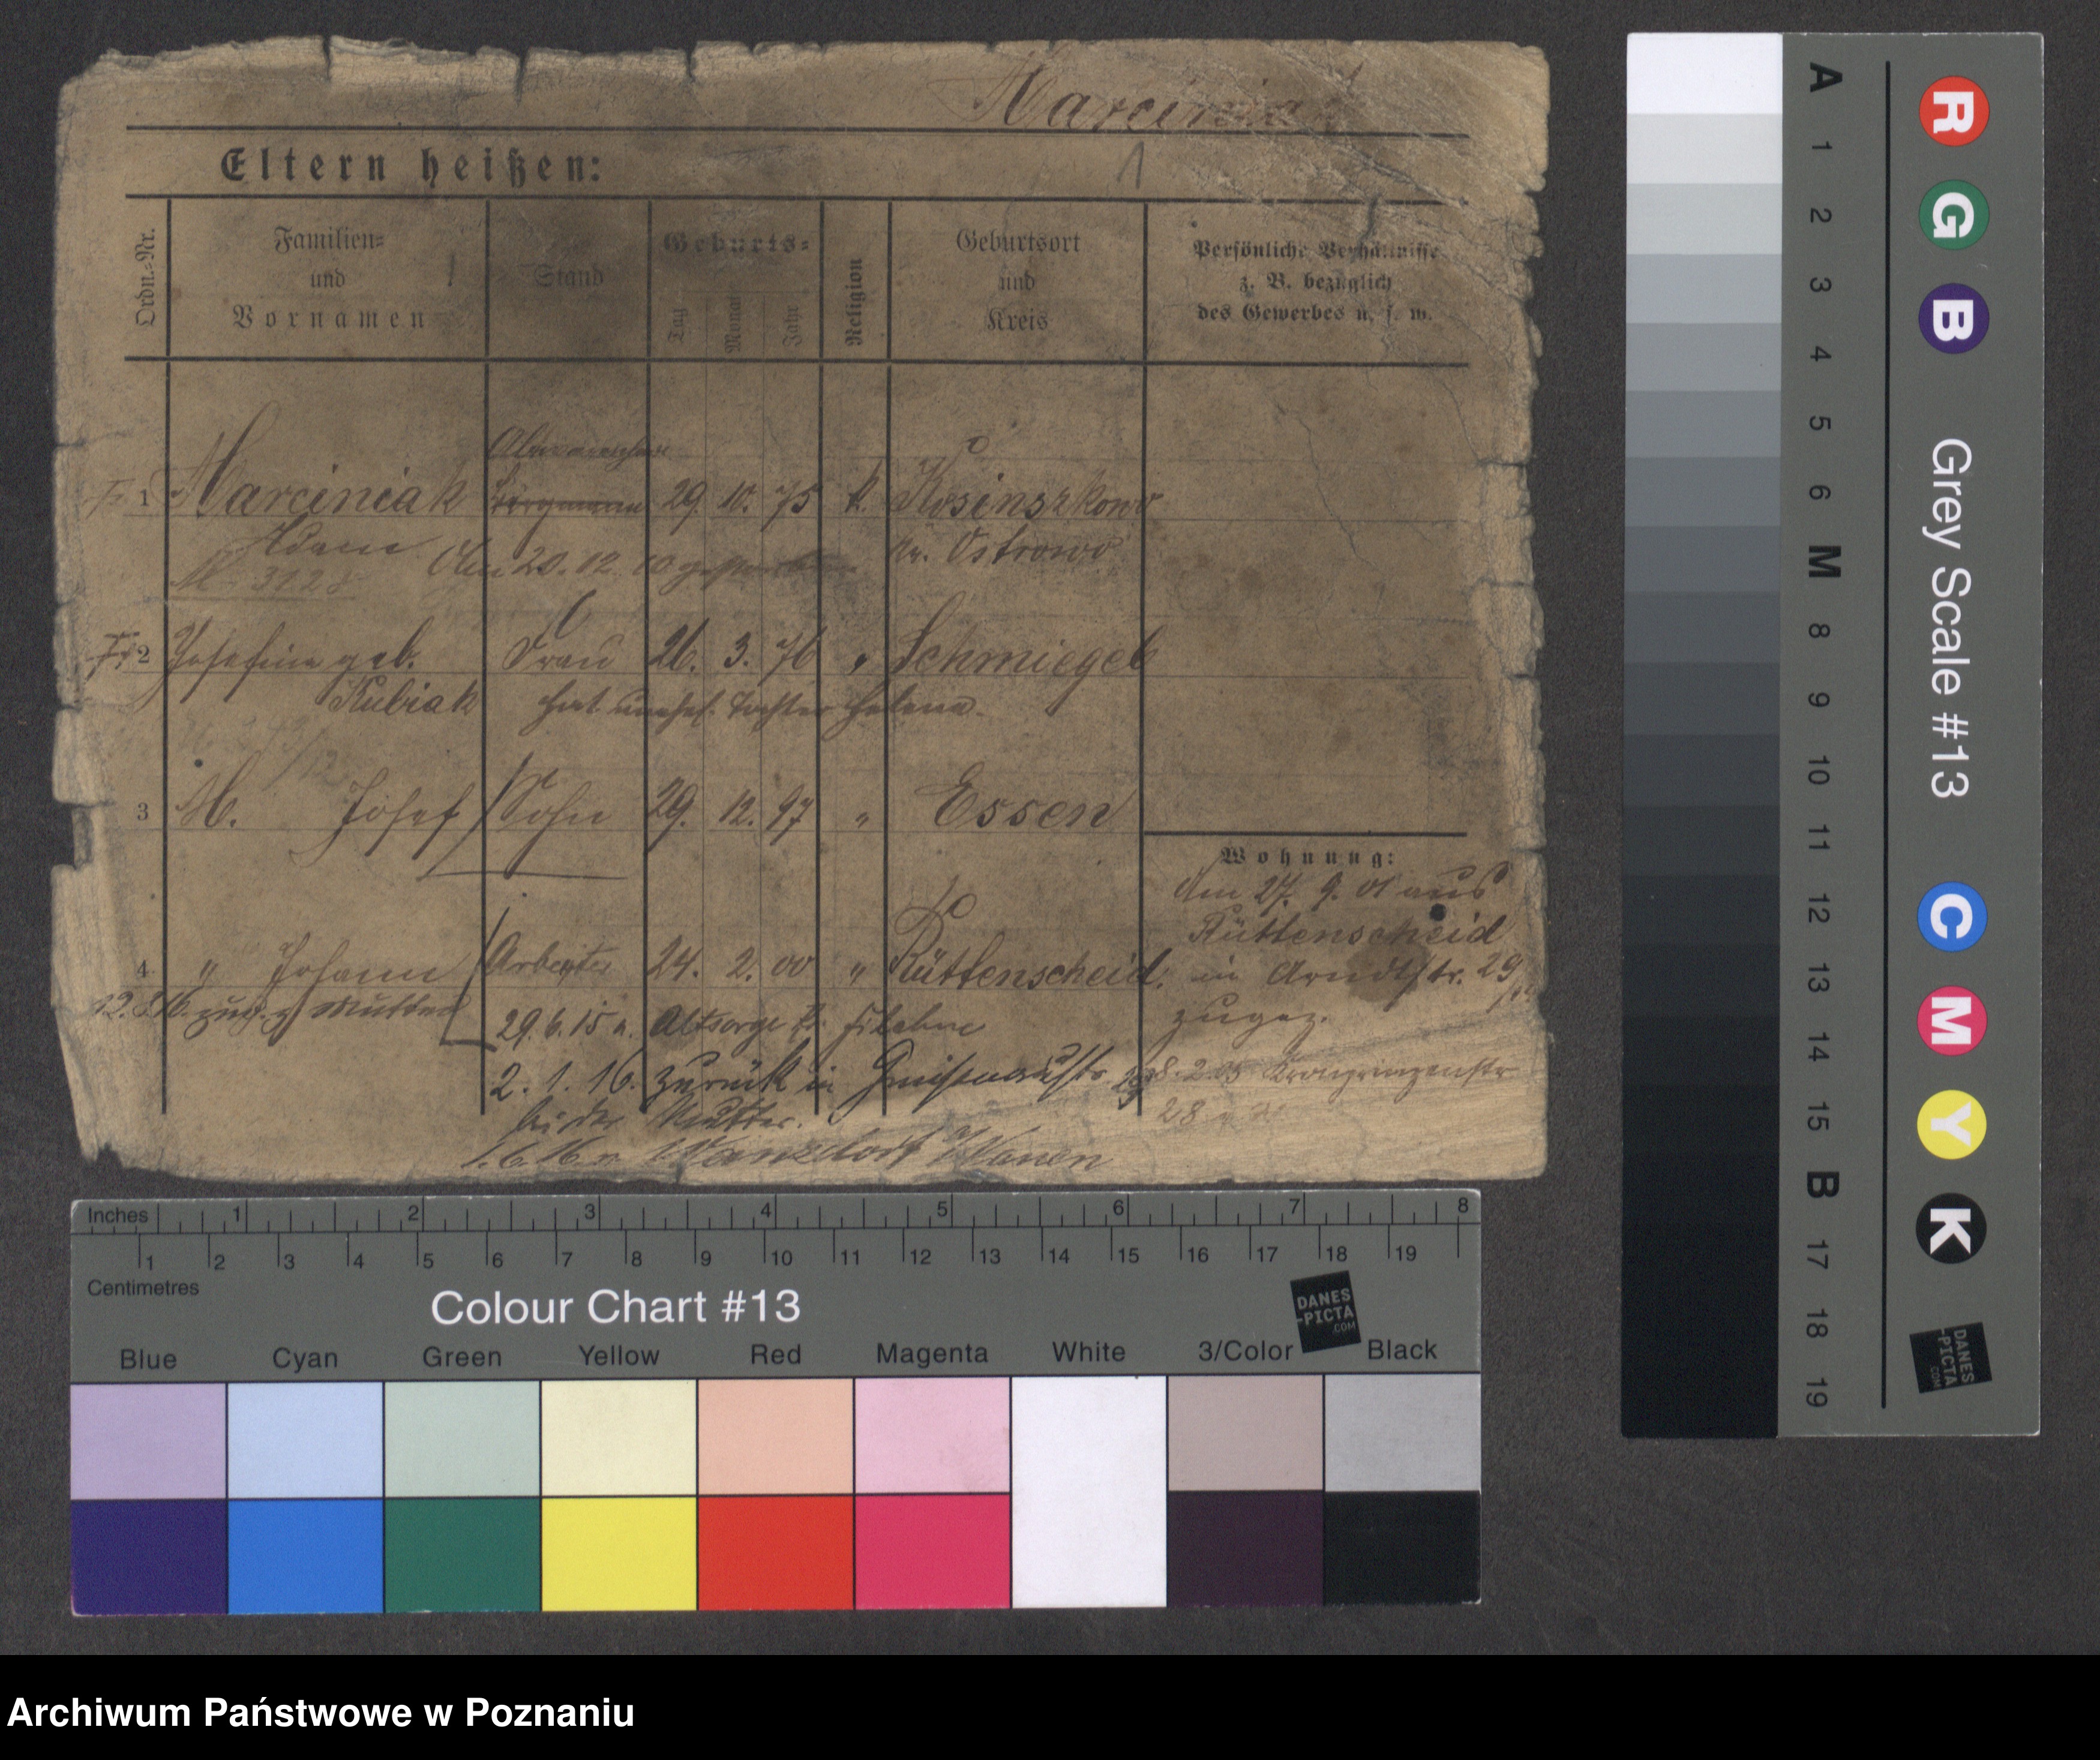 Marciniak
Eltern heißen:
1
Ordn.-Nr.
Familien-
und
Vornamen
Stand
Geburts-
Tag
Monat
Jahr
Religion
Geburtsort
und
Kreis
Persönliche Verhältnisse
z. B. bezüglich
des Gewerbes u. s. w.
1 Marciniak Bergmann 29. 10. 75 k. Kosinszkowo
Adam Am 20. 12. 10 gestorben Kr. Ostrowo
N. 3128
2 Josefine geb. Frau 26. 3. 76 " Schmiegel
Kubiak hat unehel. Tochter Helena.
3 M. Josef Sohn 29. 12. 97 " Essen
Wohnung:
Am 27. 9. 01 aus
Rüttenscheid
4. " Johann Arbeiter 24. 2. 00 " Rüttenscheid.
in Arndtstr. 29
zugez.
zug. z. Mutter
29. 6. 15 n. Altsorge Kr. Filehne
2. 1. 16. zurück in Gneisenaustr. 29
bei der Mutter.
Kronprinzenstr
28
1. 6. 16 n.
Inches 1 2 3 4 5 6 7 8
1 2 3 4 5 6 7 8 9 10 11 12 13 14 15 16 17 18 19
Centimetres
Colour Chart #13
DANES
-PICTA
.COM
Blue Cyan Green Yellow Red Magenta White 3/Color Black
A 1 2 3 4 5 6 M 8 9 10 11 12 13 14 15 B 17 18 19
R G B
Grey Scale #13
C M Y K
DANES
-PICTA
.COM
Archiwum Państwowe w Poznaniu